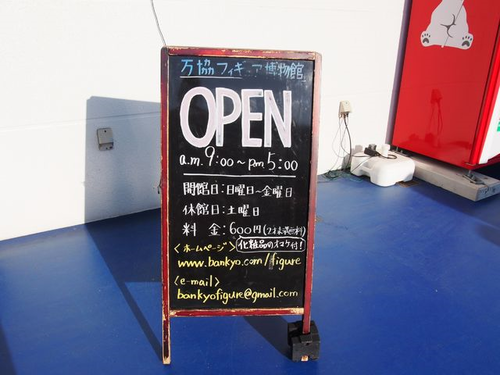 万協フィギュア博物館
OPEN
a.m. 9:00〜pm 5:00
開館日:日曜日〜金曜日
休館日:土曜日
料 金:600円(2才以下無料)
<ホームページ> 化粧品のオマケ付!
www.bankyo.com/figure
<e-mail>
bankyofigure@gmail.com